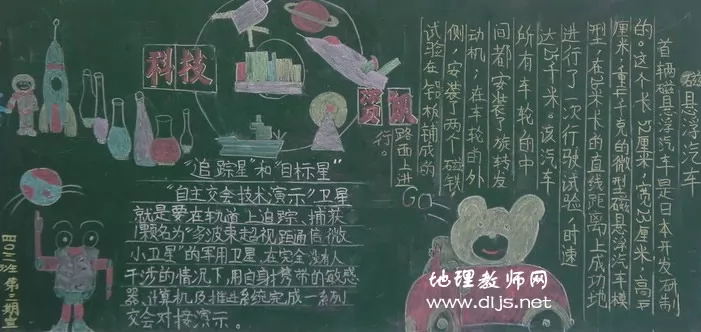 科技
资讯
"追踪星"和"目标星"
"自主交会技术演示"卫星
就是要在轨道上追踪、捕获
1颗名为"多波束超视距通信微
小卫星"的军用卫星,在完全没有人
干涉的情况下,用自身携带的敏感
器、计算机及推进系统完成一系列
交会对接演示。
磁悬浮汽车
首辆磁悬浮汽车是日本开发研制
的。这个卡52厘米,宽33厘米,高
厘米,重千克的微型磁悬浮汽车模
型,在百米卡的直线距离上成功地
进行了一次行驶试验,时速
达25千米。该汽车
所有车轮的中
间都安装了旋转发
动机;在车轮的外
侧,安装了两个磁铁
试验在铝板铺成的
路面上进
行。
GO
四〇二班 第二期
地理教师网
www.dljs.net